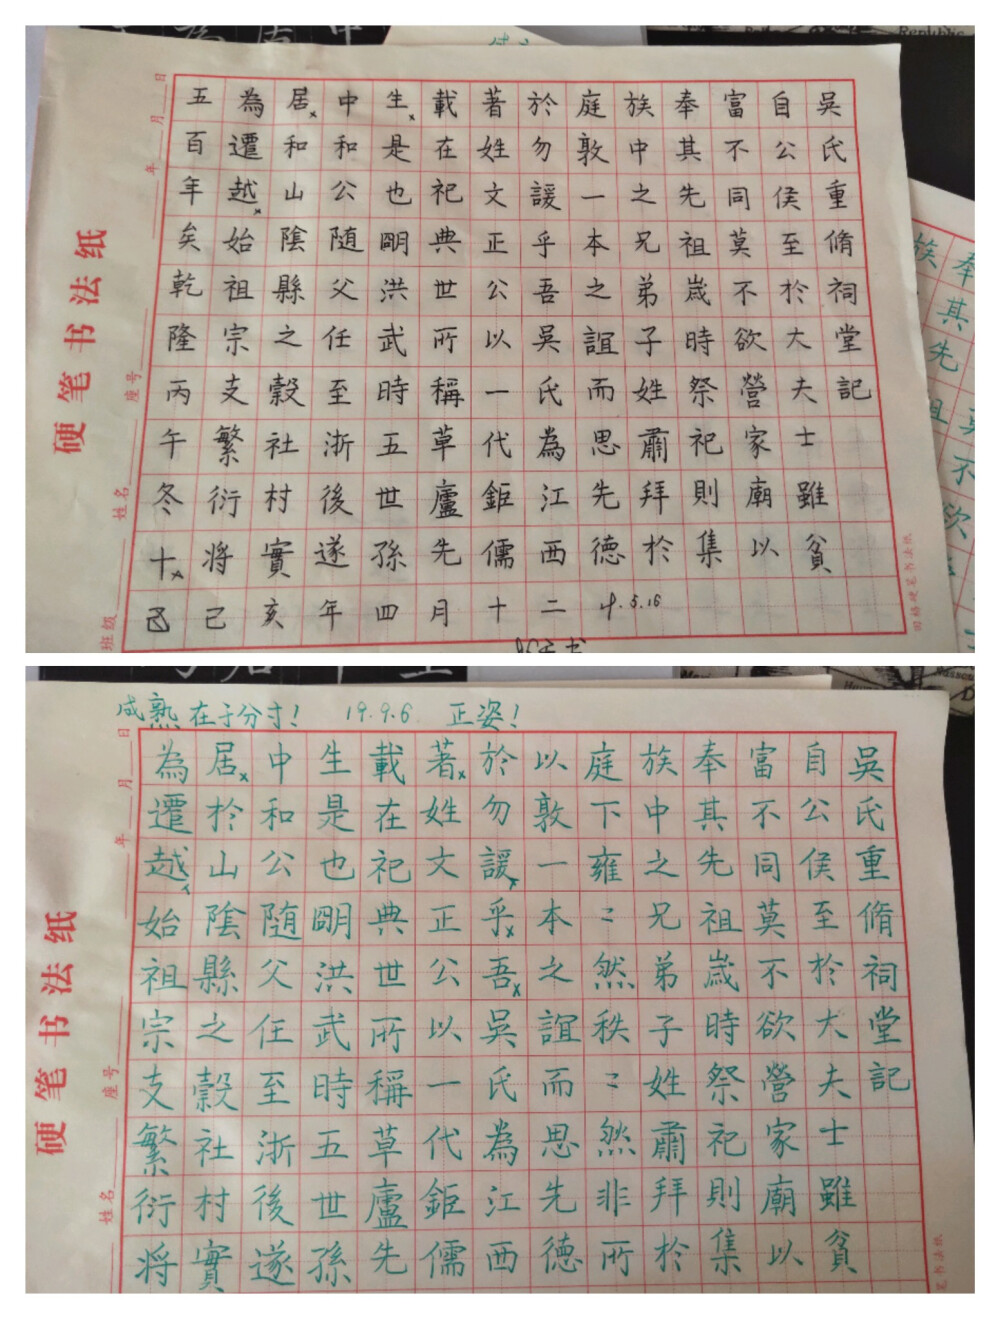 吳氏重脩祠堂記
自公侯至於大夫士雖貧
富不同莫不欲營家廟以
奉其先祖歳時祭祀則集
族中之兄弟子姓肅拜於
庭敦一本之誼而思先德
於勿諼乎吾吳氏為江西
著姓文正公以一代鉅儒
載在祀典世所稱草廬先
生是也朙洪武時五世孫
中和公随父任至浙後遂
居和山陰縣之穀社村實
為遷越始祖宗支繁衍将
五百年矣乾隆丙午冬十
己亥年四月十二 19.5.16
硬笔书法纸
班级 姓名 座号 年 月 日
成熟在于分寸! 19.9.6. 正姿!
吳氏重脩祠堂記
自公侯至於大夫士雖貧
富不同莫不欲營家廟以
奉其先祖歳時祭祀則集
族中之兄弟子姓肅拜於
庭下雍〻然秩〻然非所
以敦一本之誼而思先德
於勿諼乎吾吳氏為江西
著姓文正公以一代鉅儒
載在祀典世所稱草廬先
生是也朙洪武時五世孫
中和公随父任至浙後遂
居於山陰縣之穀社村實
為遷越始祖宗支繁衍将
硬笔书法纸
姓名 座号 年 月 日